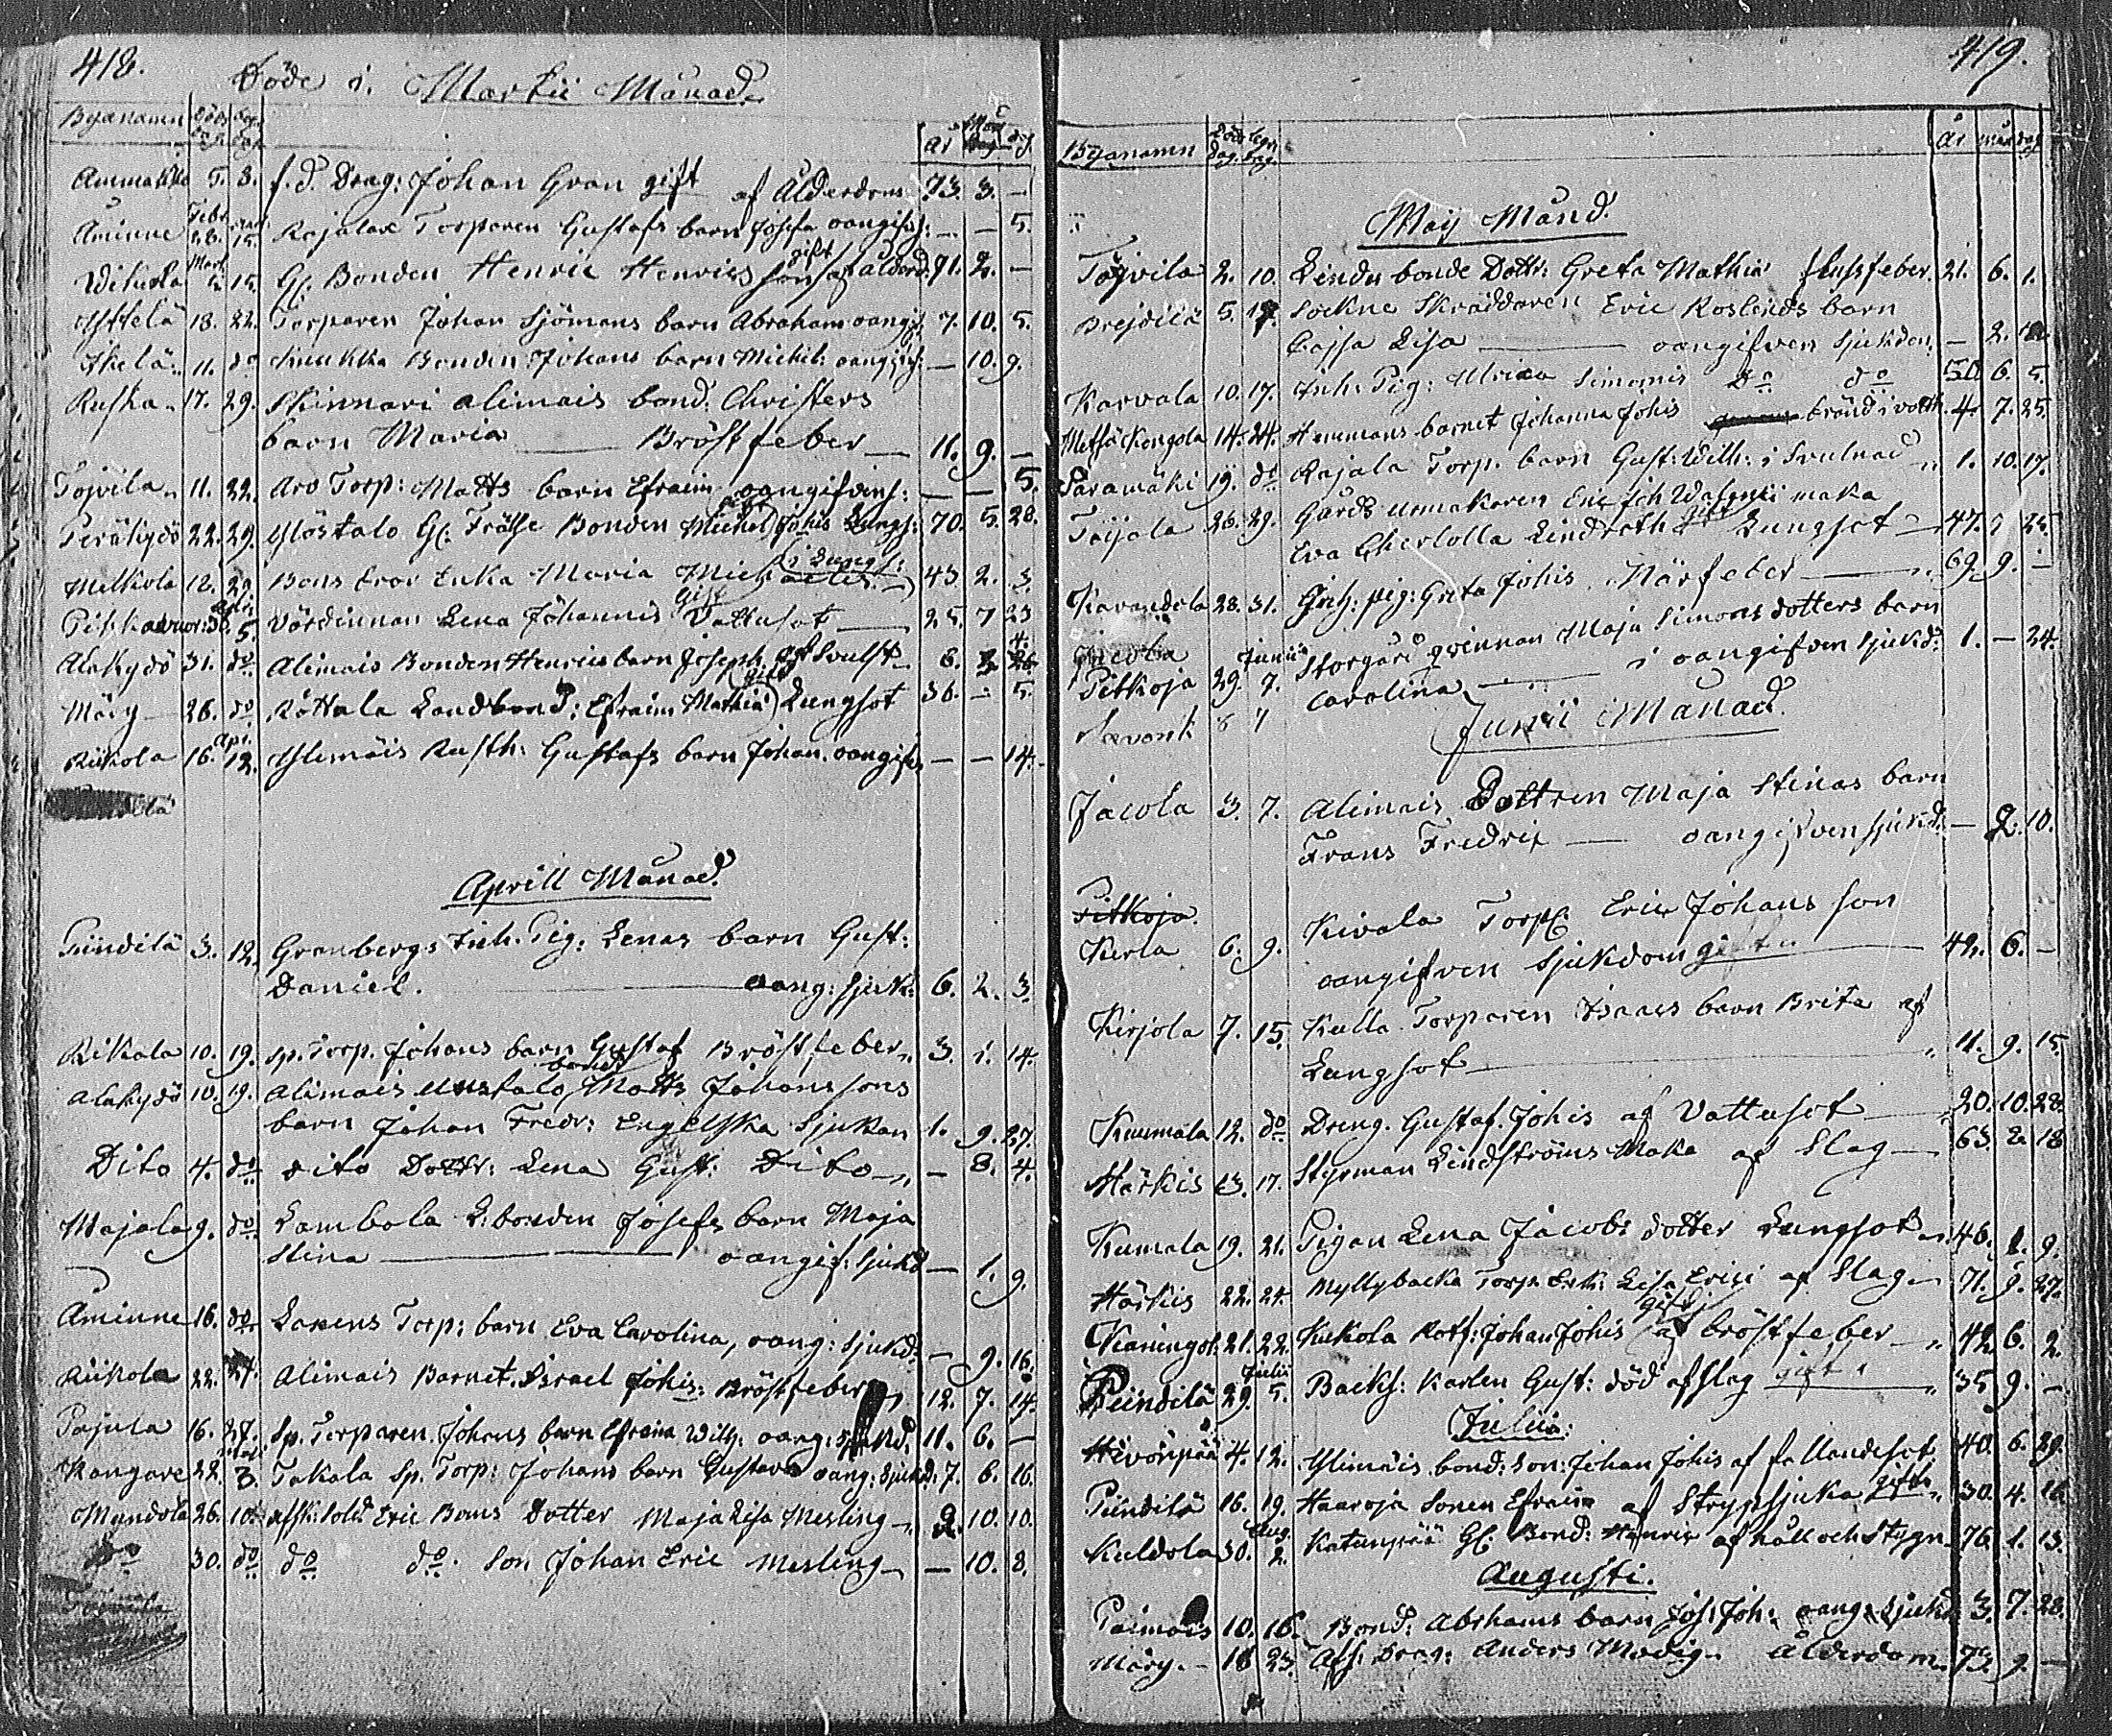 418.
Döde i Martii Månad.
Byanamn Döds dag Begr. dag År Mån dag
Ammakko 5. 8. f. d. Drag: Johan Gran gift af Ålderdom 73. 3. —
Åminne Febr. 28. 15. Rajalax Torparen Gustafs barn Josefa oangifvs: — — 5.
Mart.
15. Gl. Bonden Henric Henricsson gift af Ålderd. 71. 2. —
Yttelä 18. 22. Torparen Johan Sjömans barn Abraham oangif. 7. 10. 5.
Ihelä 11. do Bonden Johans barn Michel: oangifs: — 10. 9.
Ruska 17. 29. Skinnari Alimais bond. Christers
barn Maria — Bröstfeber — 11. 9. —
Tojvila 11. 22. Aro Torp: Matts barn Efraim oangifven s: — — 5.
22. 29. Yléstalo Gl. Frälse Bonden Michel Johis Lungs: 70. 5. 28.
Melkola 12. 29. Maria Michaelis i Lungs: 43 2. 3
5. Värdinnan Lena Johannis gift Vattusot — 25. 7 23
Alakydö 31. do Alimais Bonden Henrics barn Joseph af Svulst 6. 4.
Märy — 26. do Rättala Landbond: Efraim Mathiæ gift Lungsot 36. — 5.
Rükola 16. Apr. 12. Ylimäis Rusth: Gustafs barn Johan. oangifs — — 14.
Aprill Månad.
Pundilä 3. 12. Granbergs Inh. Pig: Lenas barn Gust:
Daniel. — oang: sjuk: 6. 2. 3.
Rikala 10. 19. Sp. Torp. Johans barn Gustaf Bröstfeber 3. 1. 14.
Alakydö 10. 19. Alimais Uustalo bond. Matts Johanssons
barn Johan Fredr: Engelska Sjukan 1. 9. 27.
Dito 4. do dito Dottr: Lena Gust: Dito — 8. 4.
Majala 9. do Lambola L:bonden Josefs barn Maja
Stina — oangif: sjukd — 1. 9.
Åminne 16. do Laxens Torp: barn Eva Carolina, oang: sjukd: — 9. 16.
Rükola 22. 27. Alimais Barnet Israel Johis: Bröstfeber 12. 7. 14.
Pajula 16. 27. Sp. Torparen Johans barn Efraim Wilh: oang: sjukd: 11. 6. —
Kangare 22. 3. Takala Sp. Torp: Johans barn Gustava oang: sjukd: 7. 6. 16.
Mundola 26. 10. afsk: sold. Eric Boms Dotter Maja Lisa Mesling 2. 10. 10.
do 30. do do do. Son Johan Eric Mesling — 10. 8.
419.
Byanamn Död dag. begr dag. År mån dag
Maij Månd.
Tojvila 2. 10. Lindu bonde Dottr: Greta Mathiæ flussfeber. 21. 6. 1.
Prejdilä 5. 17. Sockne Skräddaren Eric Roslinds barn
Cajsa Lisa — oangifven sjukdom — 2.
Karvala 10. 17. Inh: Pig: Ulrica Simonis do do 50 6. 5.
14. 24. Hemmans barnet Johanna Johis bränd i vattn. 4. 7. 25.
Paramäki 19. do Rajala Torp. barn Gust: Wilh: i Svulnad 1. 10. 17.
Toijola 26. 29. Gårds Urmakaren Eric maka
Eva Charlotta Lindroth gift Lungsot 47. 25.
28. 31. Inh: pig: Greta Johis Närfeber — 69. 9. —
Pitkoja 29. Junii 7. Storgård qvinnan Maja Simonsdotters barn
Carolina — i oangifven sjukd. 1. — 24.
Junii Månad.
Jacola 3. 7. Alimais Dottren Maja Stinas barn
Frans Fredric — oangifven sjukd. — 2. 10.
Pitkoja.
Kerla 6. 9. Kivala Torp. Eric Johansson
oangifven sjukdom gift — 42. 6. —
Kirjola 7. 15. Kulla Torparen Isaacs barn Brita af
Lungsot — 11. 9. 15.
Kuumala 12. do Dreng. Gustaf Johis af Vattusot — 20. 10. 28.
Härkis 13. 17. Styrman Lindströms Maka af Slag — 63. 2. 18
Kumala 19. 21. Pigan Lena Jacobs dotter Lungsot 46. 1. 9.
Härkis 22. 24. Myllybacka Torp. Enk: Lisa Erici af Slag 71. 9. 27.
21. 22. Kukola Johan Johis gift af Bröstfeber 42. 6. 2.
Pündilä 29. Julii 5. Backs: Karlen Gust: död af slag gift 35. 9. —
Julii.
Hevonpää 4. 12. Ylimäis bond: Son: Johan Johis af 40. 6. 29.
Pündilä 16. 19. Haaroja Sonen Efraim af Strypsjuka gift 30. 4. 16
Kuldola 30. Aug. 2. Katunpää Gl. Bond: Henric af håll och Stygn 76. 1. 13.
Augusti.
Paimais 10. 16. Bond: Abrhams barn Jos: Joh: oang: sjukd. 3. 7. 28.
Märy. 18 23. Afsk: Drag: Anders Modig. Ålderdom. 73. 9. —